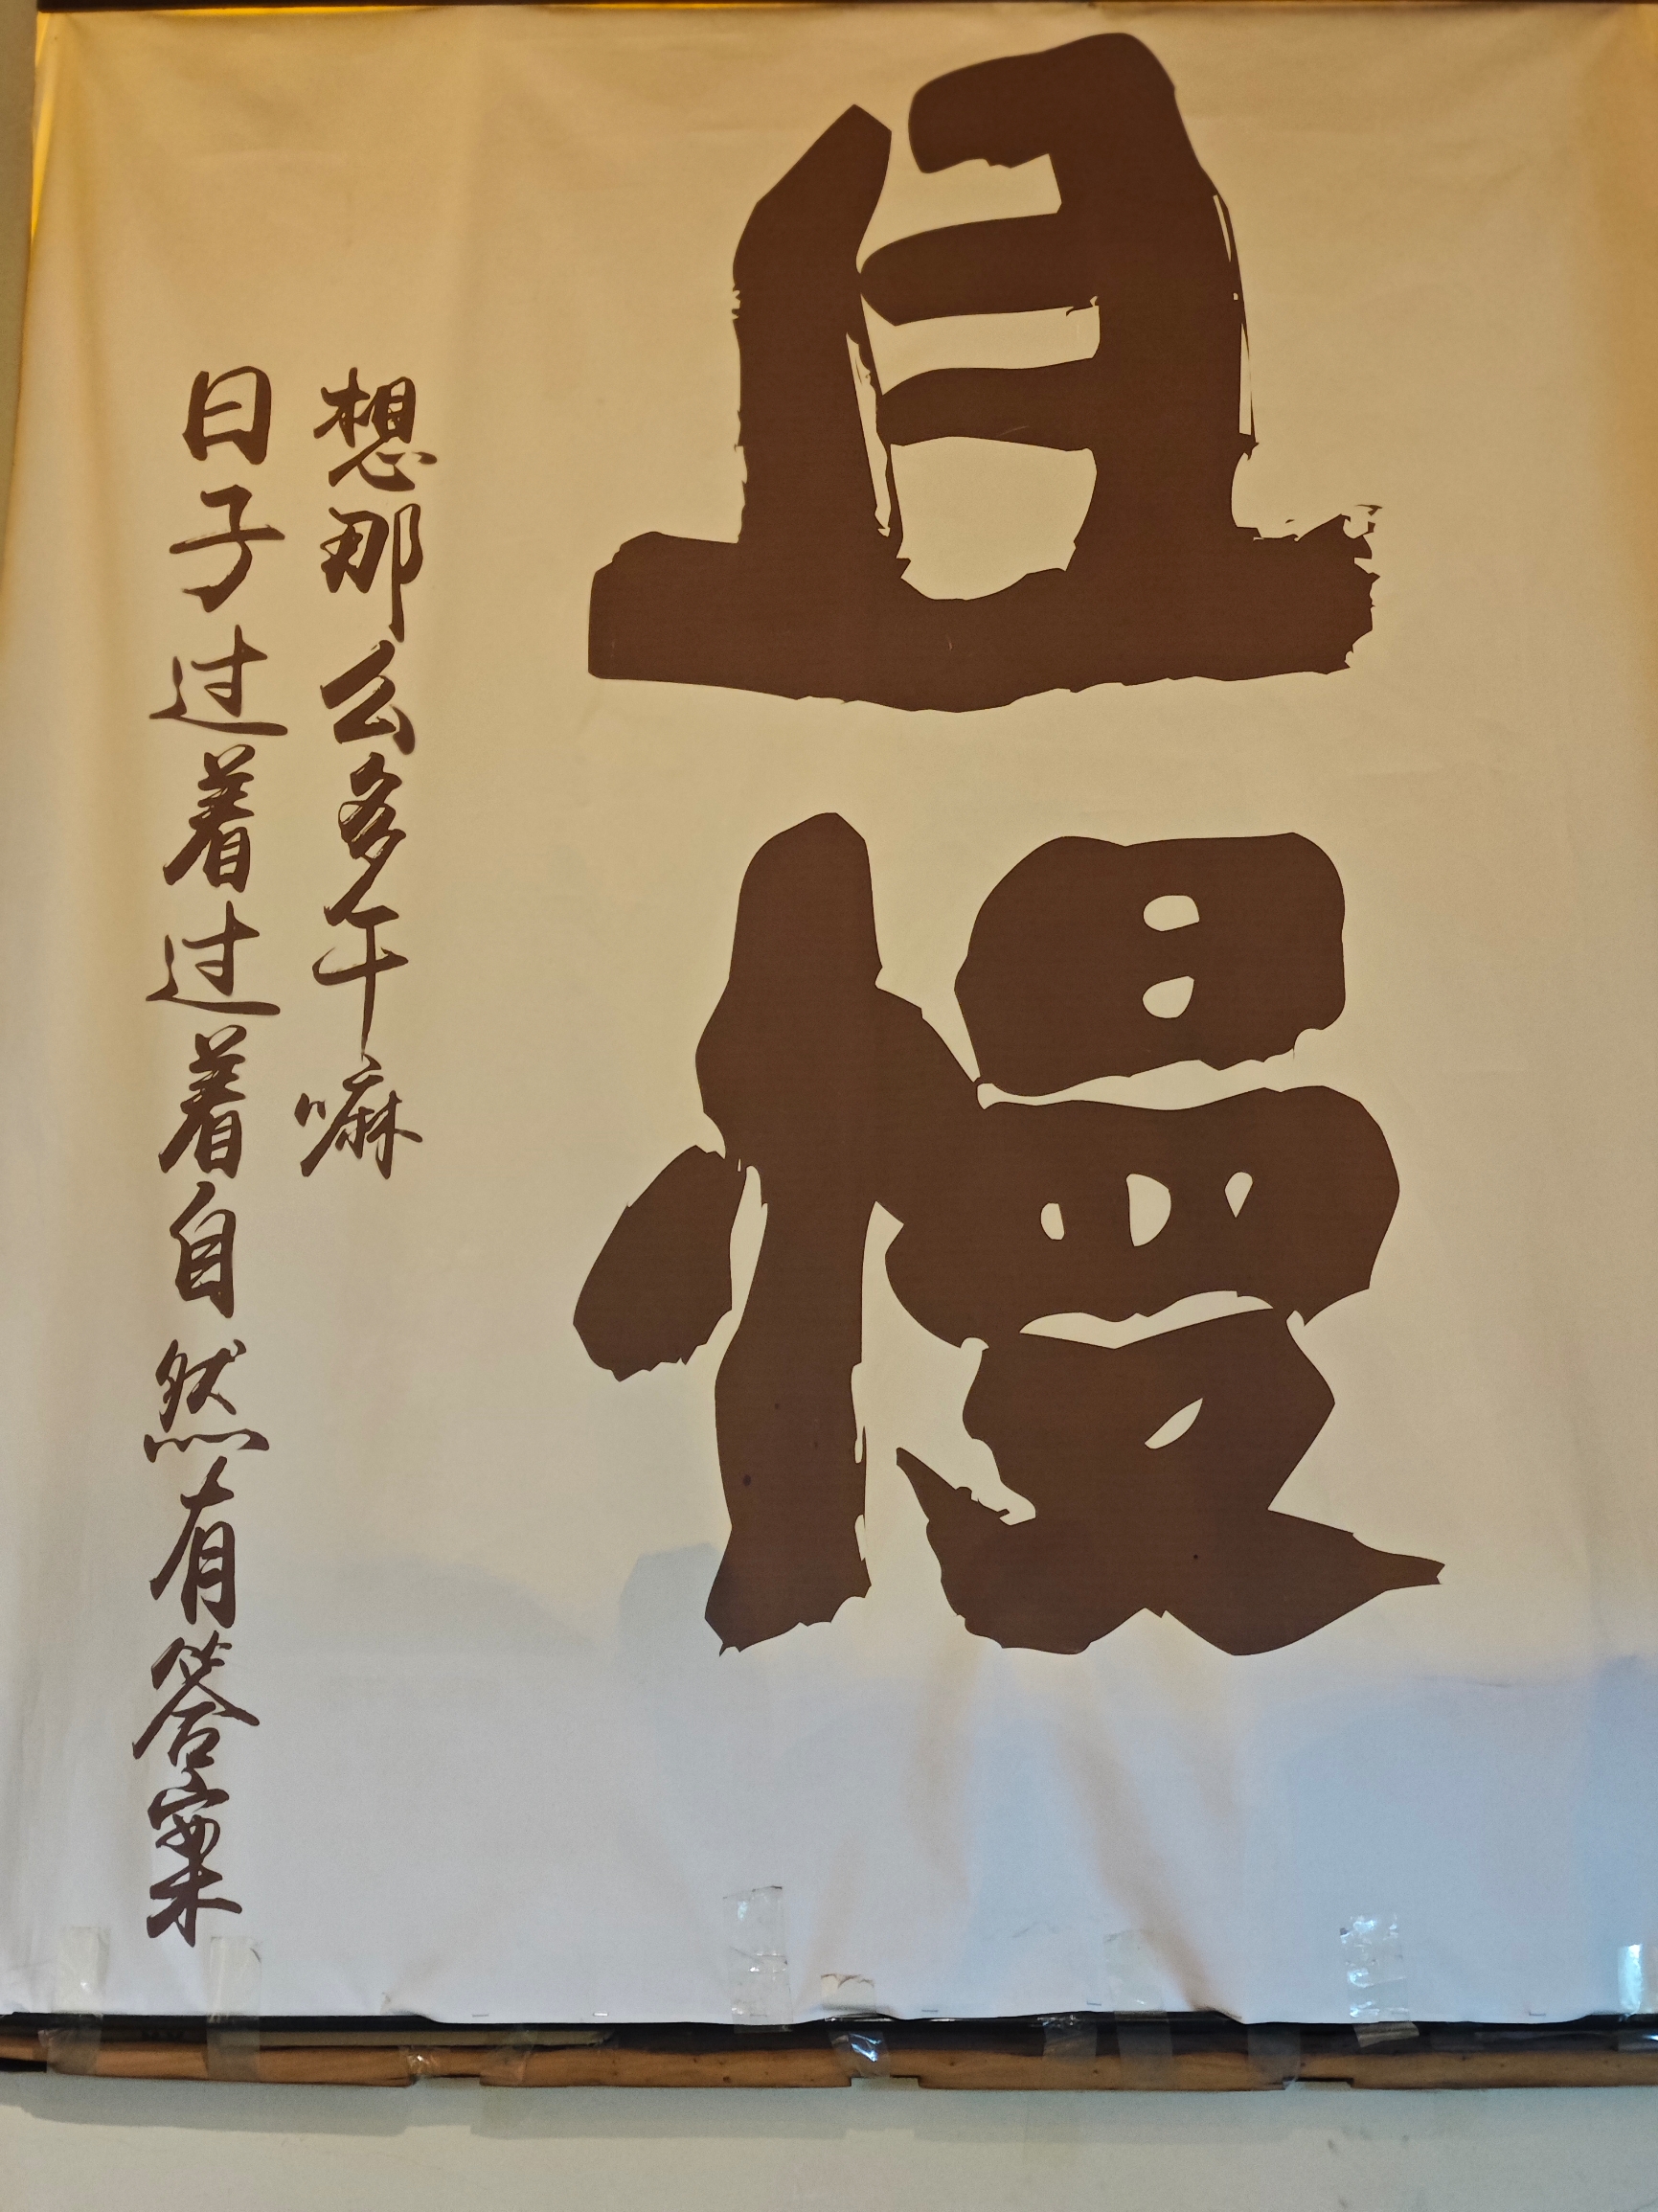 且慢
想那么多干嘛
日子过着过着自然有答案